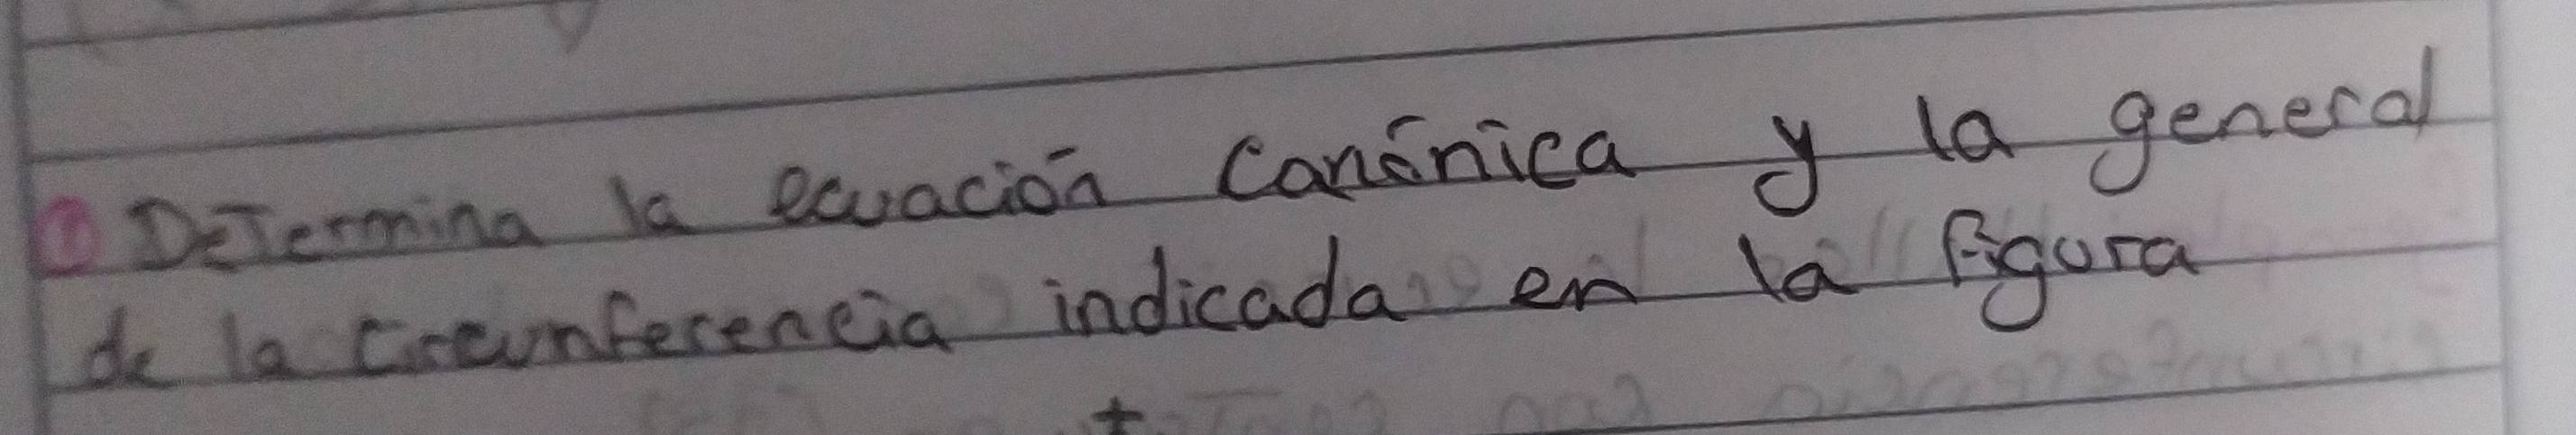 ① Determina la ecuación canónica y la general
de la circunferencia indicada en la figura